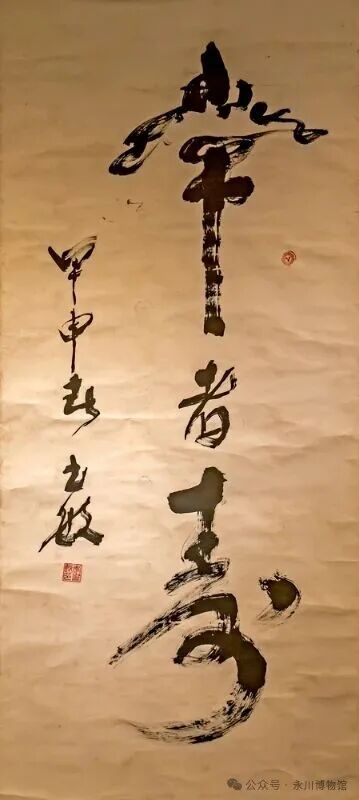 常者寿
甲申春
公众号 · 永川博物馆